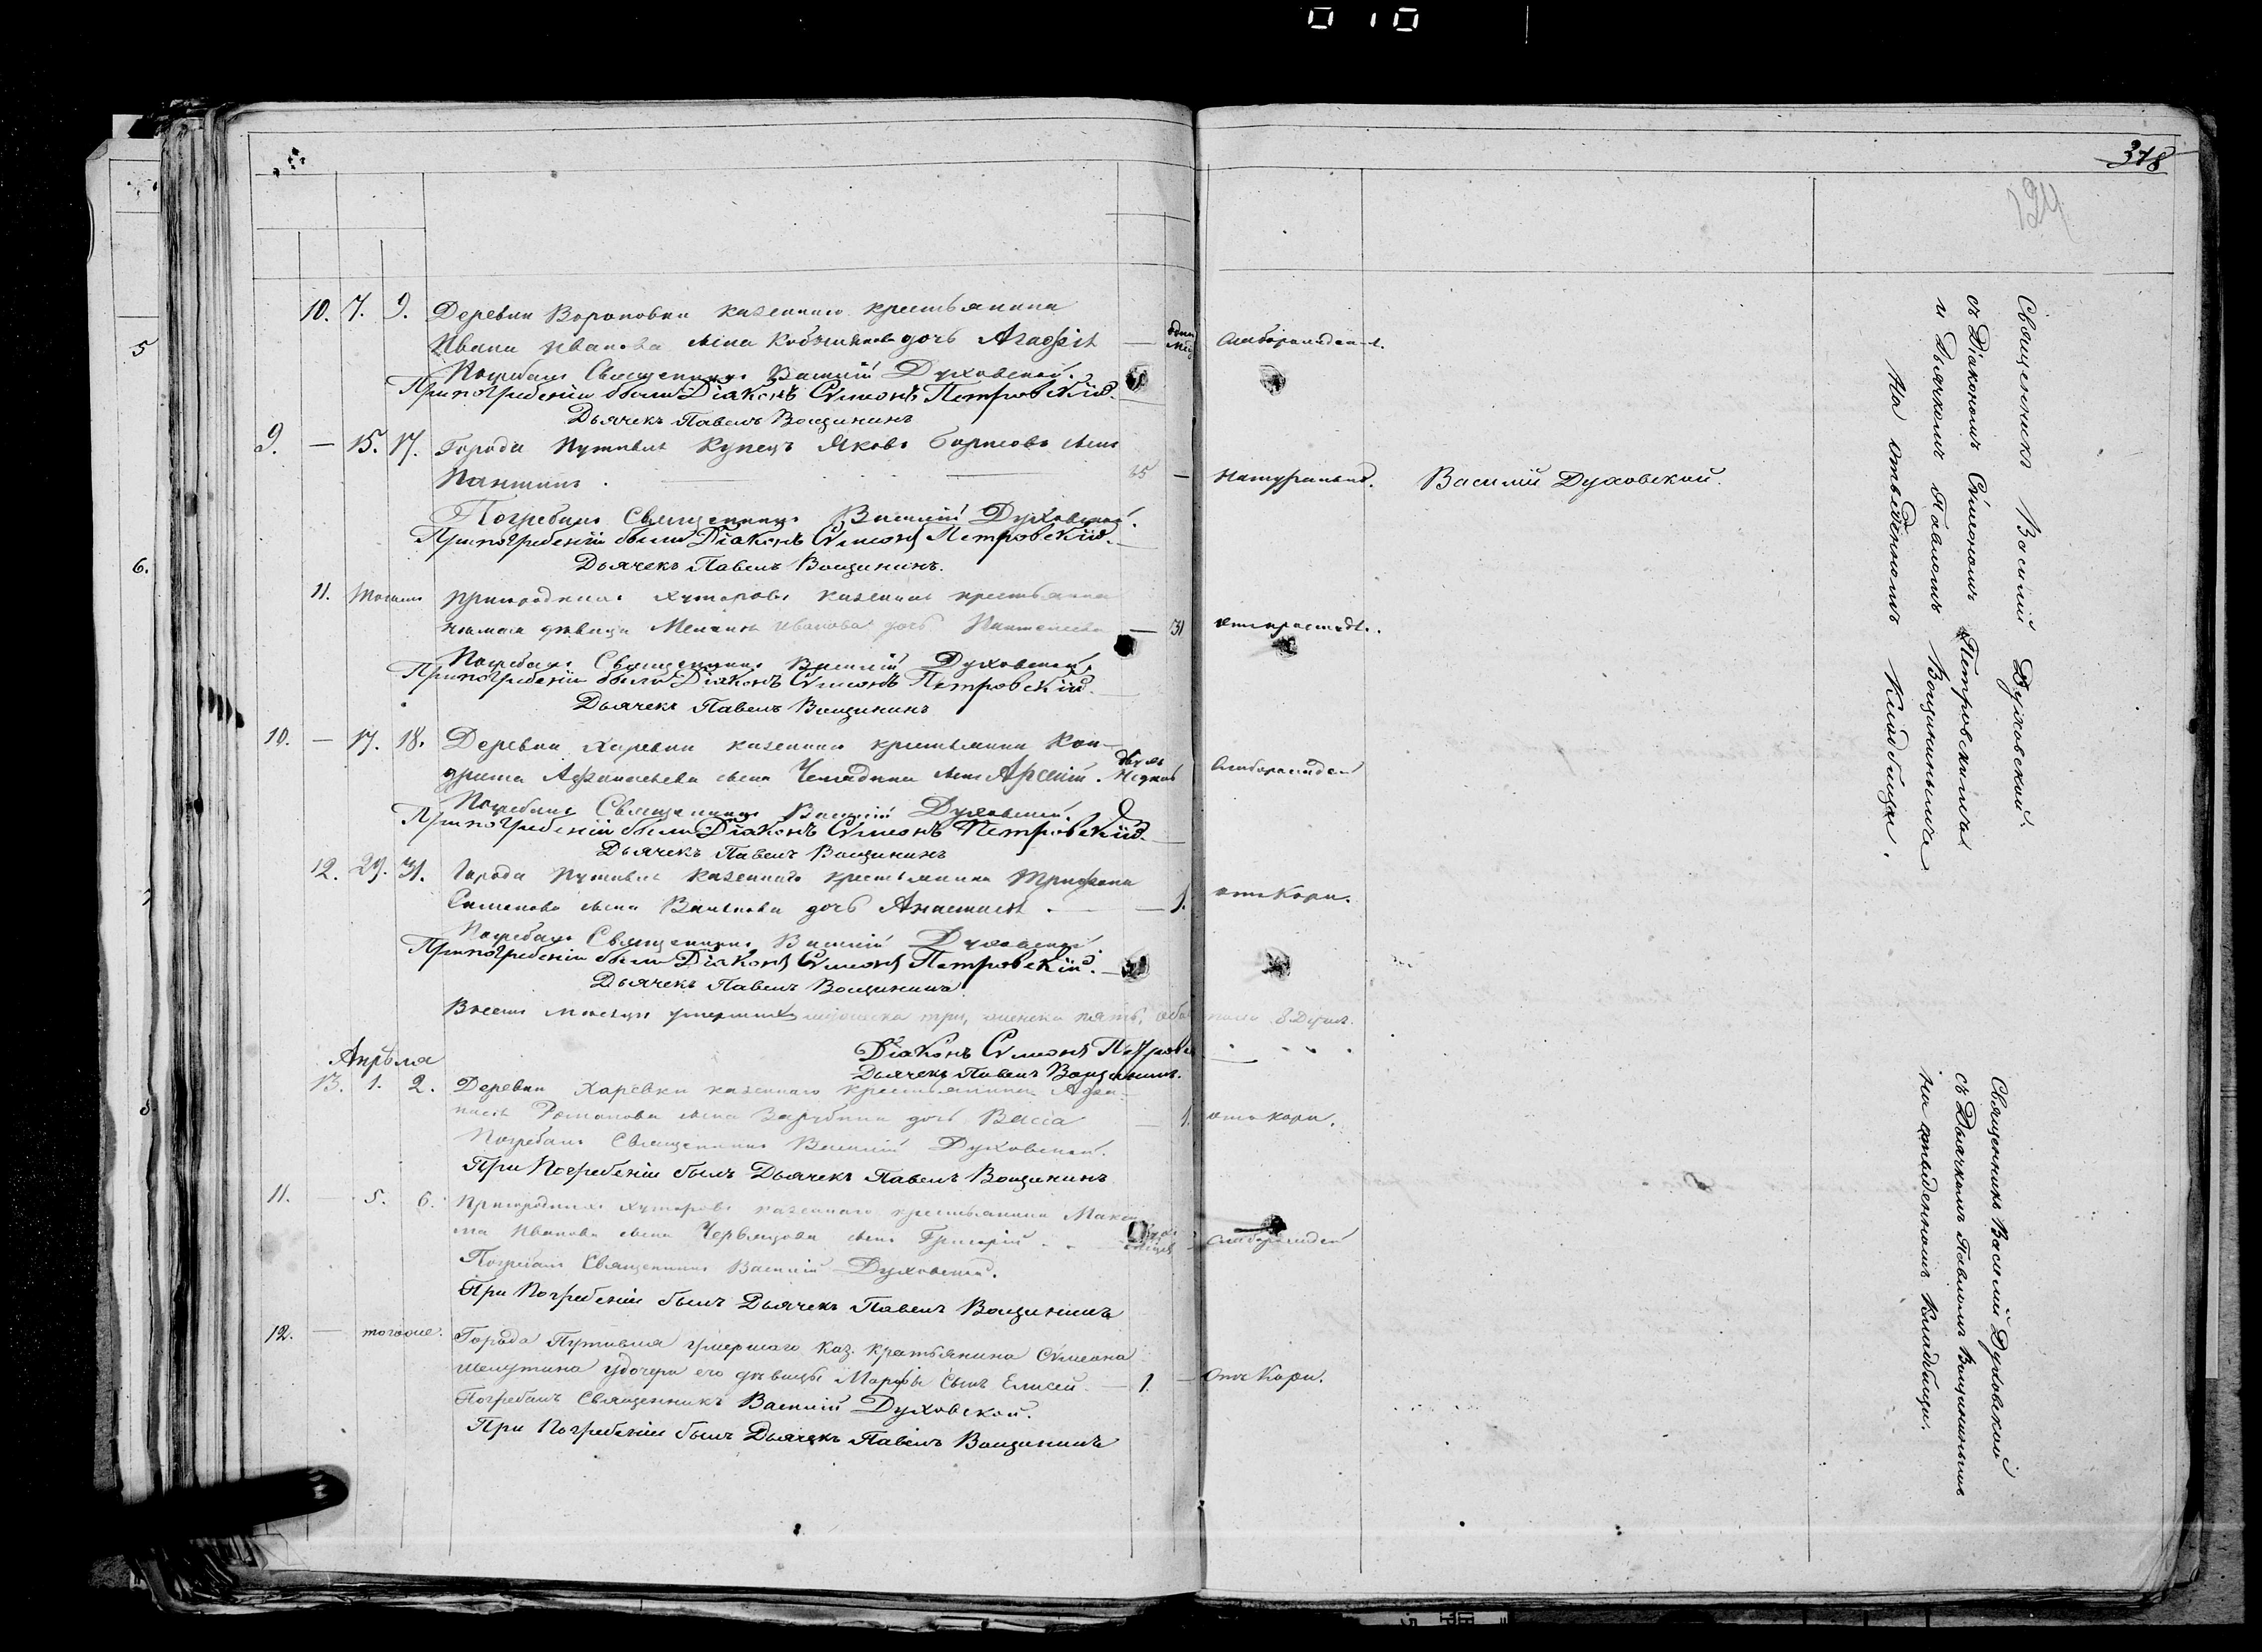 010
378
124
10. 7. 9. Деревни Вороновки казеннаго крестьянина
Ивана Иванова сына дочь Агафія — слаборожден
Погребалъ Священникъ Василій Духовской.
При погребеніи были Діаконъ Сѵмеонъ Петровскій.
Дьячекъ Павелъ Вощининъ
9. — 15. 17. Города Путивля Купецъ Яковъ Борисовъ сынъ
Пантинъ. 65 — Натурально. Василій Духовской.
Погребалъ Священникъ Василій Духовской.
При погребеніи были Діаконъ Сѵмеонъ Петровскій.
Дьячекъ Павелъ Вощининъ.
11. Пригородныхъ Хуторовъ казеннаго крестьянина
дѣвица Иванова дочь — 31 отъ простуды.
Погребалъ Священникъ Василій Духовской.
При погребеніи были Діаконъ Сѵмеонъ Петровскій.
Дьячекъ Павелъ Вощининъ
10. — 17. 18. Деревни Харевки казеннаго крестьянина Кон-
драта Афанасьева сына Чепадина сынъ Арсеній. двухъ недѣль слаборожден
Погребалъ Священникъ Василій Духовской.
При погребеніи были Діаконъ Сѵмеонъ Петровскій.
Дьячекъ Павелъ Вощининъ
12. 29. 31. Города Путивля казеннаго крестьянина Трифона
Семенова сына дочь Анастасія. — 1. отъ Кори.
Погребалъ Священникъ Василій Духовской.
При погребеніи были Діаконъ Сѵмеонъ Петровскій.
Дьячекъ Павелъ Вощининъ
Всего мѣсяцѣ умершихъ мужеска три, женска пять, обоего пола 8 душъ.
Діаконъ Сѵмеонъ Петровскі
Дьячекъ Павелъ Вощининъ.
Апрѣля
13. 1. 2. Деревни Харевки казеннаго крестьянина Афа-
насія Романова сына Зарубина дочь Васса — 1. отъ кори.
Погребалъ Священникъ Василій Духовской.
При Погребеніи былъ Дьячекъ Павелъ Вощининъ
11. 5. 6. Пригородныхъ Хуторовъ казеннаго крестьянина Макси-
ма Иванова сына Червяцова сынъ Григорій. слаборожден
Погребалъ Священникъ Василій Духовской.
При Погребеніи былъ Дьячекъ Павелъ Вощининъ
12. — тогоже. Города Путивля умершаго каз. крестьянина Сѵмеона
Шелутина у дочери его дѣвицы Марфы сынъ Елисей. — 1. — Отъ Кори.
Погребалъ Священникъ Василій Духовской.
При Погребеніи былъ Дьячекъ Павелъ Вощининъ
Священникъ Василій Духовской.
съ Діакономъ Сѵмеономъ Петровскимъ
и Дьячкомъ Павломъ Вощининымъ
На отведенномъ Кладбищи.
Священникъ Василій Духовской
съ Дьячкомъ Павломъ Вощининымъ
на отведенномъ Кладбищи.
5
6.